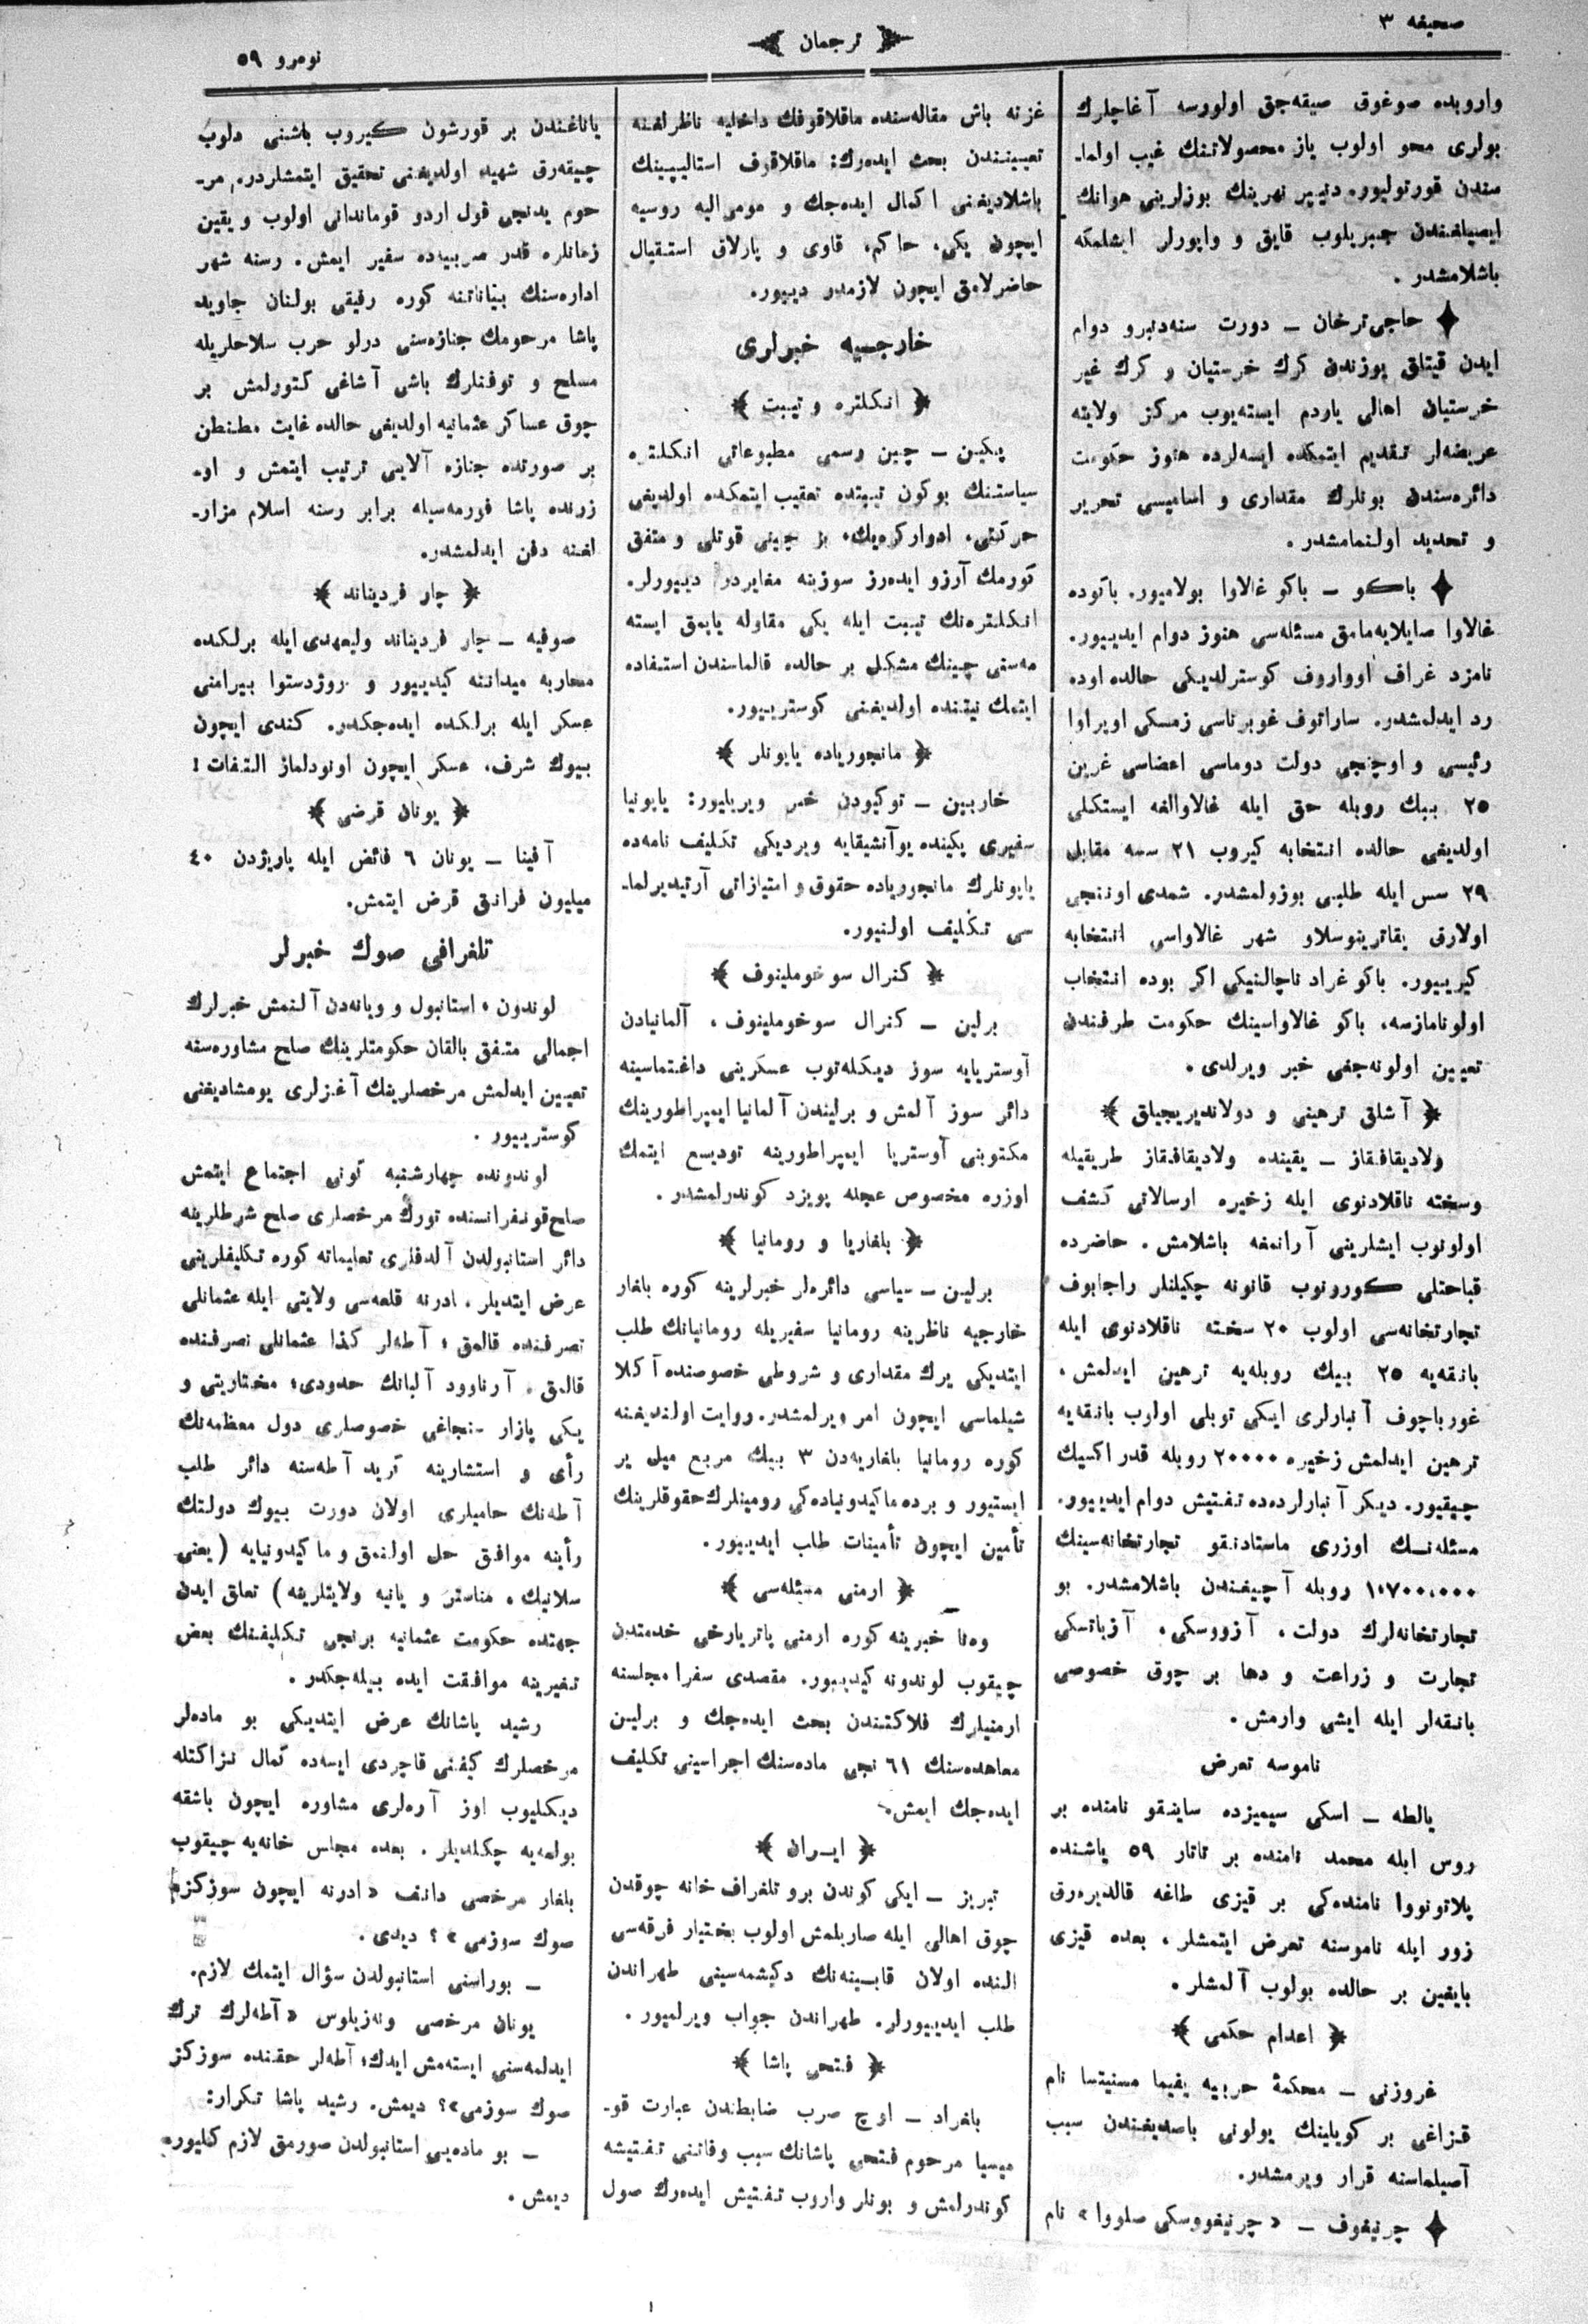 صحیفه ٣
ترجمان
نومرو ٥٩
واروبده صوغوق صیقه‌جق اولورسه آغاچلرك
بولری محو اولوب یاز محصولاتنك غیب اولما-
سندن قورتولیور. دنیپر نهرینك بوزلرینی هوانك
ایصیلغندن چیریلوب قایق و واپورلر ایشلمكه
باشلامشدر.
حاجی‌ترخان – دورت سنه‌دنبرو دوام
ایدن قیتلق یوزندن كرك خرستیان و كرك غیر
خرستیان اهالی یاردم ایسته‌یوب مركز ولایته
عریضه‌لر تقدیم ایتمكده ایسه‌لرده هنوز حكومت
دائره‌سندن بونلرك مقداری و اسامیسی تحریر
و تحدید اولنمامشدر.
باكو – باكو غالاوا بولامیور. باكوده
غالاوا صایلایه‌مامق مسئله‌سی هنوز دوام ایدییور.
نامزد غراف اوواروف كوسترلدیكی حالده اوده
رد ایدلمشدر. ساراتوف غوبرناسی زمسكی اوپراوا
رئیسی و اوچنجی دولت دوماسی اعضاسی غرین
٢٥ بیك روبله حق ایله غالاوالغه ایستكلی
اولدیغی حالده انتخابه كیروب ٢١ سسه مقابل
٢٩ سس ایله طلبی بوزولمشدر. شمدی اوننجی
اولارق یقاترینوسلاو شهر غالاواسی انتخابه
كیرییور. باكو غراد ناچالنیكی اكر بوده انتخاب
اولونامازسه، باكو غالاواسینك حكومت طرفندن
تعیین اولونه‌جغی خبر ویرلدی.
آشلق ترهینی و دولاندیریجیلق
ولادیقافقاز – یقینده ولادیقافقاز طریقیله
وسخته ناقلادنوی ایله زخیره ارسالاتی كشف
اولونوب ایشلرینی آرانمغه باشلامش. حاضرده
قباحتلی كورونوب قانونه چكیلنلر راجابوف
تجارتخانه‌سی اولوب ٢٠ سخته ناقلادنوی ایله
بانقه‌یه ٢٥ بیك روبله‌یه ترهین ایدلمش،
غورباچوف آنبارلری ایكی توبلی اولوب بانقه‌یه
ترهین ایدلمش زخیره ٢٠٠٠٠ روبله قدر اكسیك
چیقیور. دیكر آنبارلرده‌ده تفتیش دوام ایدییور.
مسئله‌نك اوزری ماستادنقو تجارتخانه‌سینك
١،٧٠٠،٠٠٠ روبله آچیغندن باشلامشدر. بو
تجارتخانه‌لرك دولت، آزووسكی، آزیاتسكی
تجارت و زراعت و دها بر چوق خصوصی
بانقه‌لر ایله ایشی وارمش.
ناموسه تعرض
یالطه – اسكی سیمیزده ساینقو نامنده بر
روس ایله محمد نامنده بر تاتار ٥٩ یاشنده
پلاتونووا نامنده‌كی بر قیزی طاغه قالدیره‌رق
زور ایله ناموسنه تعرض ایتمشلر، بعده قیزی
بایغین بر حالده بولوب آلمشلر.
اعدام حكمی
غروزنی – محكمهٔ حربیه یفیما مسنیتسا نام
قزاغی بر كویلینك یولونی باصدیغندن سبب
آصیلماسنه قرار ویرمشدر.
چرنیغوف – «چرنیغووسكی صلووا» نام
غزته باش مقاله‌سنده ماقلاقوفك داخلیه ناظرلغنه
تعیینندن بحث ایده‌رك: ماقلاقوف استالیپینك
باشلادیغنی اكمال ایده‌جك و مومی‌الیه روسیه
ایچون یكی، حاكم، قاوی و پارلاق استقبال
حاضرلامق ایچون لازمدر دییور.
خارجیه خبرلری
انكلتره و تیبت
پكین – چین رسمی مطبوعاتی انكلتره
سیاستنك بوكون تیبتده تعقیب ایتمكده اولدیغی
حركتی، ادوارك‌ره‌یك، بز چینی قوتلی و متفق
كورمك آرزو ایده‌رز سوزینه مغایردر دییورلر.
انكلتره‌نك تیبت ایله یكی مقاوله یاپمق ایسته
مه‌سنی چینك مشكل بر حالده قالماسندن استفاده
ایتمك نیتنده اولدیغنی كوسترییور.
مانجوریاده یاپونلر
خاربین – توكیودن خبر ویریلیور: یاپونیا
سفیری پكینده یوآنشیقایه ویردیكی تكلیف نامه‌ده
یاپونلرك مانجوریاده حقوق و امتیازاتی آرتدیرلما-
سی تكلیف اولنیور.
كنرال سوخوملینوف
برلین – كنرال سوخوملینوف، آلمانیادن
آوستریایه سوز دیكله‌توب عسكرینی داغتماسینه
دائر سوز آلمش و برلیندن آلمانیا ایمپراطورینك
مكتوبنی آوستریا ایمپراطورینه تودیسع ایتمك
اوزره مخصوص عجله پویزد كوندرلمشدر.
بلغاریا و رومانیا
برلین – سیاسی دائره‌لر خبرلرینه كوره بلغار
خارجیه ناظرینه رومانیا سفیریله رومانیانك طلب
ایتدیكی یرك مقداری و شروطی خصوصنده آكلا
شیلماسی ایچون امر ویرلمشدر. روایت اولندیغنه
كوره رومانیا بلغاریه‌دن ٣ بیك مربع میل یر
ایستیور و برده ماكیدونیاده‌كی رومینلرك حقوقلرینك
تأمین ایچون تأمینات طلب ایدییور.
ارمنی مسئله‌سی
وه‌نا خبرینه كوره ارمنی پاتریارخی خدمتدن
چیقوب لوندونه كیدییور. مقصدی سفرا مجلسنه
ارمنیلرك فلاكتندن بحث ایده‌جك و برلین
معاهده‌سنك ٦١ نجی ماده‌سنك اجراسینی تكلیف
ایده‌جك ایمش.
ایران
تبریز – ایكی كوندن برو تلغراف خانه چوقدن
چوق اهالی ایله صاریلمش اولوب بختیار فرقه‌سی
النده اولان قابینه‌نك دكیشمه‌سینی طهراندن
طلب ایدییورلر. طهراندن جواب ویرلمیور.
فتحی پاشا
بلغراد – اوچ صرب ضابطندن عبارت قو-
میسیا مرحوم فتحی پاشانك سبب وفاتنی تفتیشه
كوندرلمش و بونلر واروب تفتیش ایده‌رك صول
یاناغندن بر قورشون كیروب باشنی دلوب
چیقه‌رق شهید اولدیغنی تحقیق ایتمشلردر. مر-
حوم یدنجی قول اردو قوماندانی اولوب ویقین
زمانلره قدر صربیاده سفیر ایمش. رسنه شهر
اداره‌سنك بیاناتنه كوره رفیقی بولنان جاوید
پاشا مرحومك جنازه‌سنی درلو حرب سلاحلریله
مسلح و توفنلرك باشی آشاغی كتورلمش بر
چوق عساكر عثمانیه اولدیغی حالده غایت مطنطن
بر صورتده جنازه آلایی ترتیب ایتمش و او-
زرنده پاشا فورمه‌سیله برابر رسنه اسلام مزار-
لغنه دفن ایدلمشدر.
چار فردیناند
صوفیه – چار فردیناند ولیعهدی ایله برلكده
محاربه میداننه كیدییور و روژدستوا بیرامنی
عسكر ایله برلكده ایده‌جكدر. كندی ایچون
بیوك شرف، عسكر ایچون اونودلماز التفات!
یونان قرضی
آفینا – یونان ٦ فائض ایله پاریژدن ٤٠
میلیون فرانق قرض ایتمش.
تلغرافی صوك خبرلر
لوندون، استانبول و ویانه‌دن آلنمش خبرلرك
اجمالی متفق بالقان حكومتلرینك صلح مشاوره‌سنه
تعیین ایدلمش مرخصلرینك آغزلری یومشادیغنی
كوسترییور.
لوندونده چهارشنبه كونی اجتماع ایتمش
صلح قونفرانسنده تورك مرخصلری صلح شرطلرینه
دائر استانبولدن آلدقلری تعلیماته كوره تكلیفلرینی
عرض ایتدیلر. ادرنه قلعه‌سی ولایتی ایله عثمانلی
تصرفنده قالمق؛ آطه‌لر كذا عثمانلی تصرفنده
قالمق. آرناوود آلبانك حدودی، مختاریتی و
یكی پازار سنجاغی خصوصلری دول معظمه‌نك
رأی و استشارینه كرید آطه‌سنه دائر طلب
آطه‌نك حامیلری اولان دورت بیوك دولتك
رأینه موافق حل اولنمق و ماكیدونیایه (یعنی
سلانیك، مناستر و یانیه ولایتلرینه) تعلق ایدن
جهتده حكومت عثمانیه برنجی تكلیفنك بعض
تغیرینه موافقت ایده بیله‌جكدر.
رشید پاشانك عرض ایتدیكی بو ماده‌لر
مرخصلرك كیفنی قاچردی ایسه‌ده كمال نزاكتله
دیكلیوب اوز آره‌لری مشاوره ایچون باشقه
بولمه‌یه چكلدیلر. بعده مجلس خانه‌یه چیقوب
بلغار مرخصی دانف «ادرنه ایچون سوزكزم
صوك سوزمی»؟ دیدی.
– بوراسنی استانبولدن سؤال ایتمك لازم.
یونان مرخصی ونه‌زیلوس «آطه‌لرك ترك
ایدلمه‌سنی ایسته‌مش ایدك؛ آطه‌لر حقنده سوزكز
صوك سوزمی»؟ دیمش. رشید پاشا تكرار:
– بو ماده‌یی استانبولدن صورمق لازم كلیور.
دیمش.